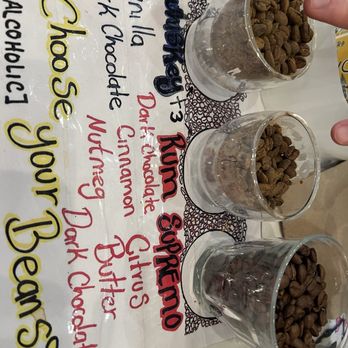 +3 RUM SUPREMO
nilla Dark Chocolate Citrus
k Chocolate Cinnamon Butter
Nutmeg Dark Chocolat
Choose your Beans
ALCOHOLIC]